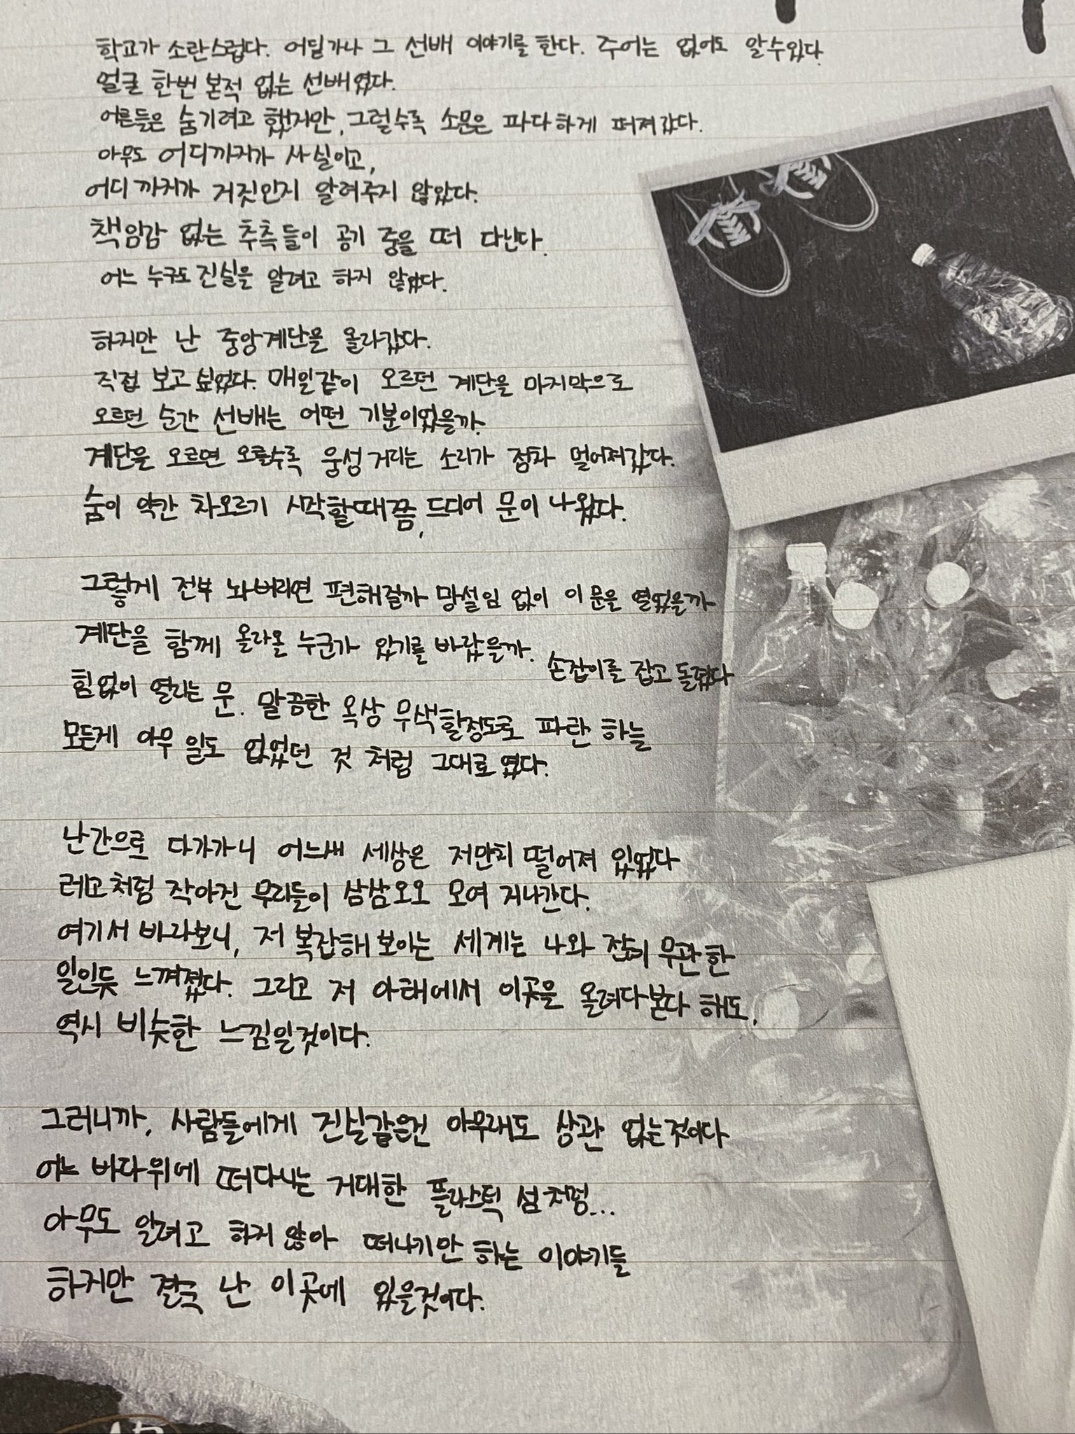 학교가 소란스럽다. 어딜가나 그 선배 이야기를 한다. 주어는 없어도 알수있다.
얼굴 한번 본적 없는 선배였다.
어른들은 숨기려고 했지만, 그럴수록 소문은 파다하게 퍼져갔다.
아무도 어디까지가 사실이고,
어디까지가 거짓인지 알려주지 않았다.
책임감 없는 추측들이 공기 중을 떠 다닌다.
어느 누구도 진실을 알려고 하지 않았다.
하지만 난 중앙계단을 올라갔다.
직접 보고 싶었다. 매일같이 오르던 계단을 마지막으로
오르던 순간 선배는 어떤 기분이었을까.
계단을 오르면 오를수록 웅성거리는 소리가 점차 멀어져갔다.
숨이 약간 차오르기 시작할때쯤, 드디어 문이 나왔다.
그렇게 전부 놔버리면 편해질까 망설임 없이 이 문을 열었을까
계단을 함께 올라올 누군가 있기를 바랐을까. 손잡이를 잡고 돌렸다
힘없이 열리는 문. 말끔한 옥상 무색할정도로 파란 하늘
모든게 아무 일도 없었던 것 처럼 그대로였다.
난간으로 다가가니 어느새 세상은 저만치 떨어져 있었다
레고처럼 작아진 무리들이 삼삼오오 모여 지나간다.
여기서 바라보니, 저 복잡해 보이는 세계는 나와 전혀 무관한
일인듯 느껴졌다. 그리고 저 아래에서 이곳을 올려다본다 해도,
역시 비슷한 느낌일것이다.
그러니까, 사람들에게 진실같은건 아무래도 상관 없는것이다
어느 바다위에 떠다니는 거대한 플라스틱 섬처럼...
아무도 알려고 하지 않아 떠나기만 하는 이야기들
하지만 결국 난 이곳에 있을것이다.